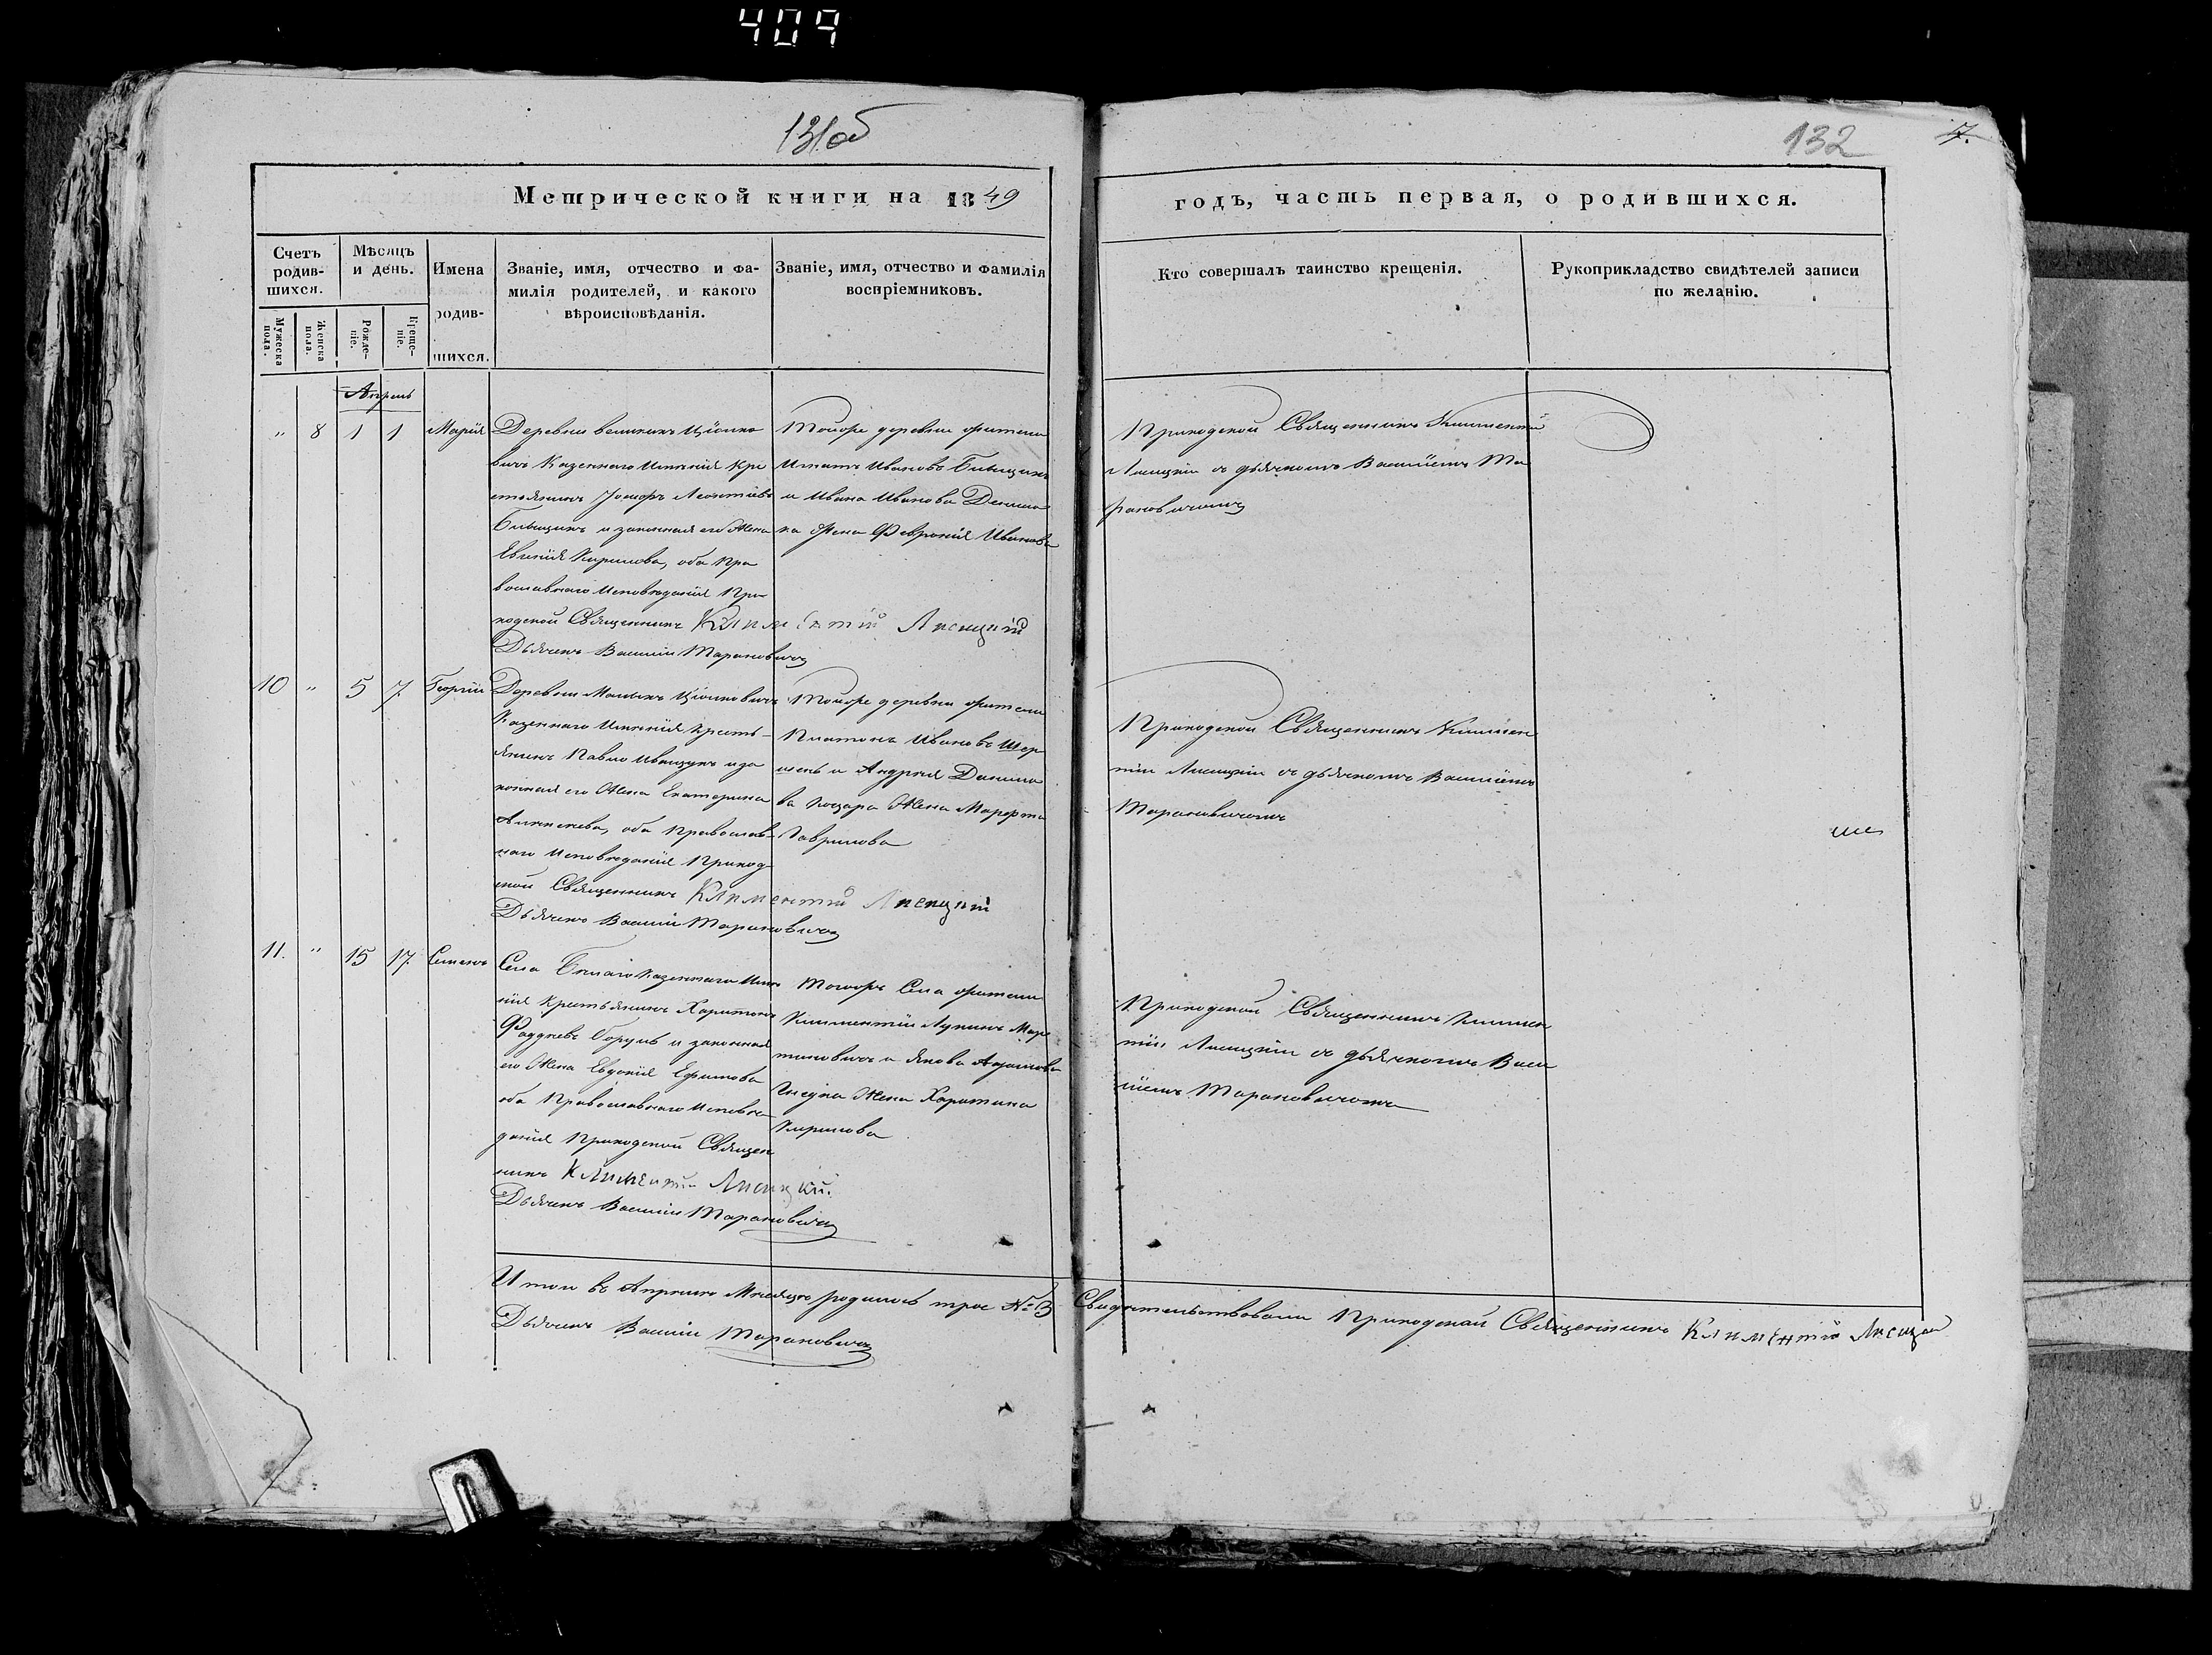 409
131об
132
7.
Метрической книги на 1849
годъ, часть первая, о родившихся.
Счетъ родив-шихся.
Мѣсяцъ и день.
Имена родив-шихся.
Званіе, имя, отчество и фа-
милія родителей, и какого
вѣроисповѣданія.
Званіе, имя, отчество и фамилія
воспріемниковъ.
Кто совершалъ таинство крещенія.
Рукоприкладство свидѣтелей записи
по желанію.
Мужеска пола.
Женска пола.
Рожде-ніе.
Креще-ніе.
Апрель
" 8 1 1 Марія
Деревни великихъ
вичь Казеннаго Имѣнія Кре
стьянинъ Леонтіевъ
и законная его Жена
Кирилова, оба Пра
вославнаго Исповѣданія При-
ходской Священникъ Климентій Лисицкій
Дьячекъ Василій Тарановичъ
Тойже деревни жители
Игнатъ Ивановъ
и Ивана Иванова
ка Жена Февронія Иванова
Приходской Священникъ Климентій
Лисицкій съ дьячкомъ Василіемъ Та
рановичемъ
10 " 5 7 Георгій
Деревни Малыхъ
Казеннаго Имѣнія Кресть-
янинъ Павло и за
конная его Жена Екатерина
Алексѣева, оба Православ-
наго Исповѣданія Приход
ской Священникъ Климентій Лисицкій
Дьячекъ Василій Тарановичъ
Тойже деревни жители
Платонъ Ивановъ Шер
шень и Андрея Данило
ва Жена Марфта
Гаврилова
Приходской Священникъ Климен
тій Лисицкій съ дьячкомъ Василіемъ
Тарановичемъ
11. " 15 17. Семенъ
Села Казеннаго Имѣ
нія Крестьянинъ Харитонъ
Фаддеевъ и законная
его Жена Евдокія Ефимова
оба Православнаго Исповѣ
данія Приходской Священ
никъ Климентій Лисицкій.
Дьячекъ Василій Тарановичъ
Тогоже Села жители
Климентій Лукинъ Мар
тиновичъ и Якова Адамова
Жена Харитина
Кирилова
Приходской Священникъ Климен
тій Лисицкій съ дьячкомъ Васи
ліемъ Тарановичемъ
Итого въ Апрѣлѣ Мѣсяцѣ родилось трое № 3
Свидѣтельствовали Приходской Священникъ Климентій Лисицкій
Дьячекъ Василій Тарановичъ